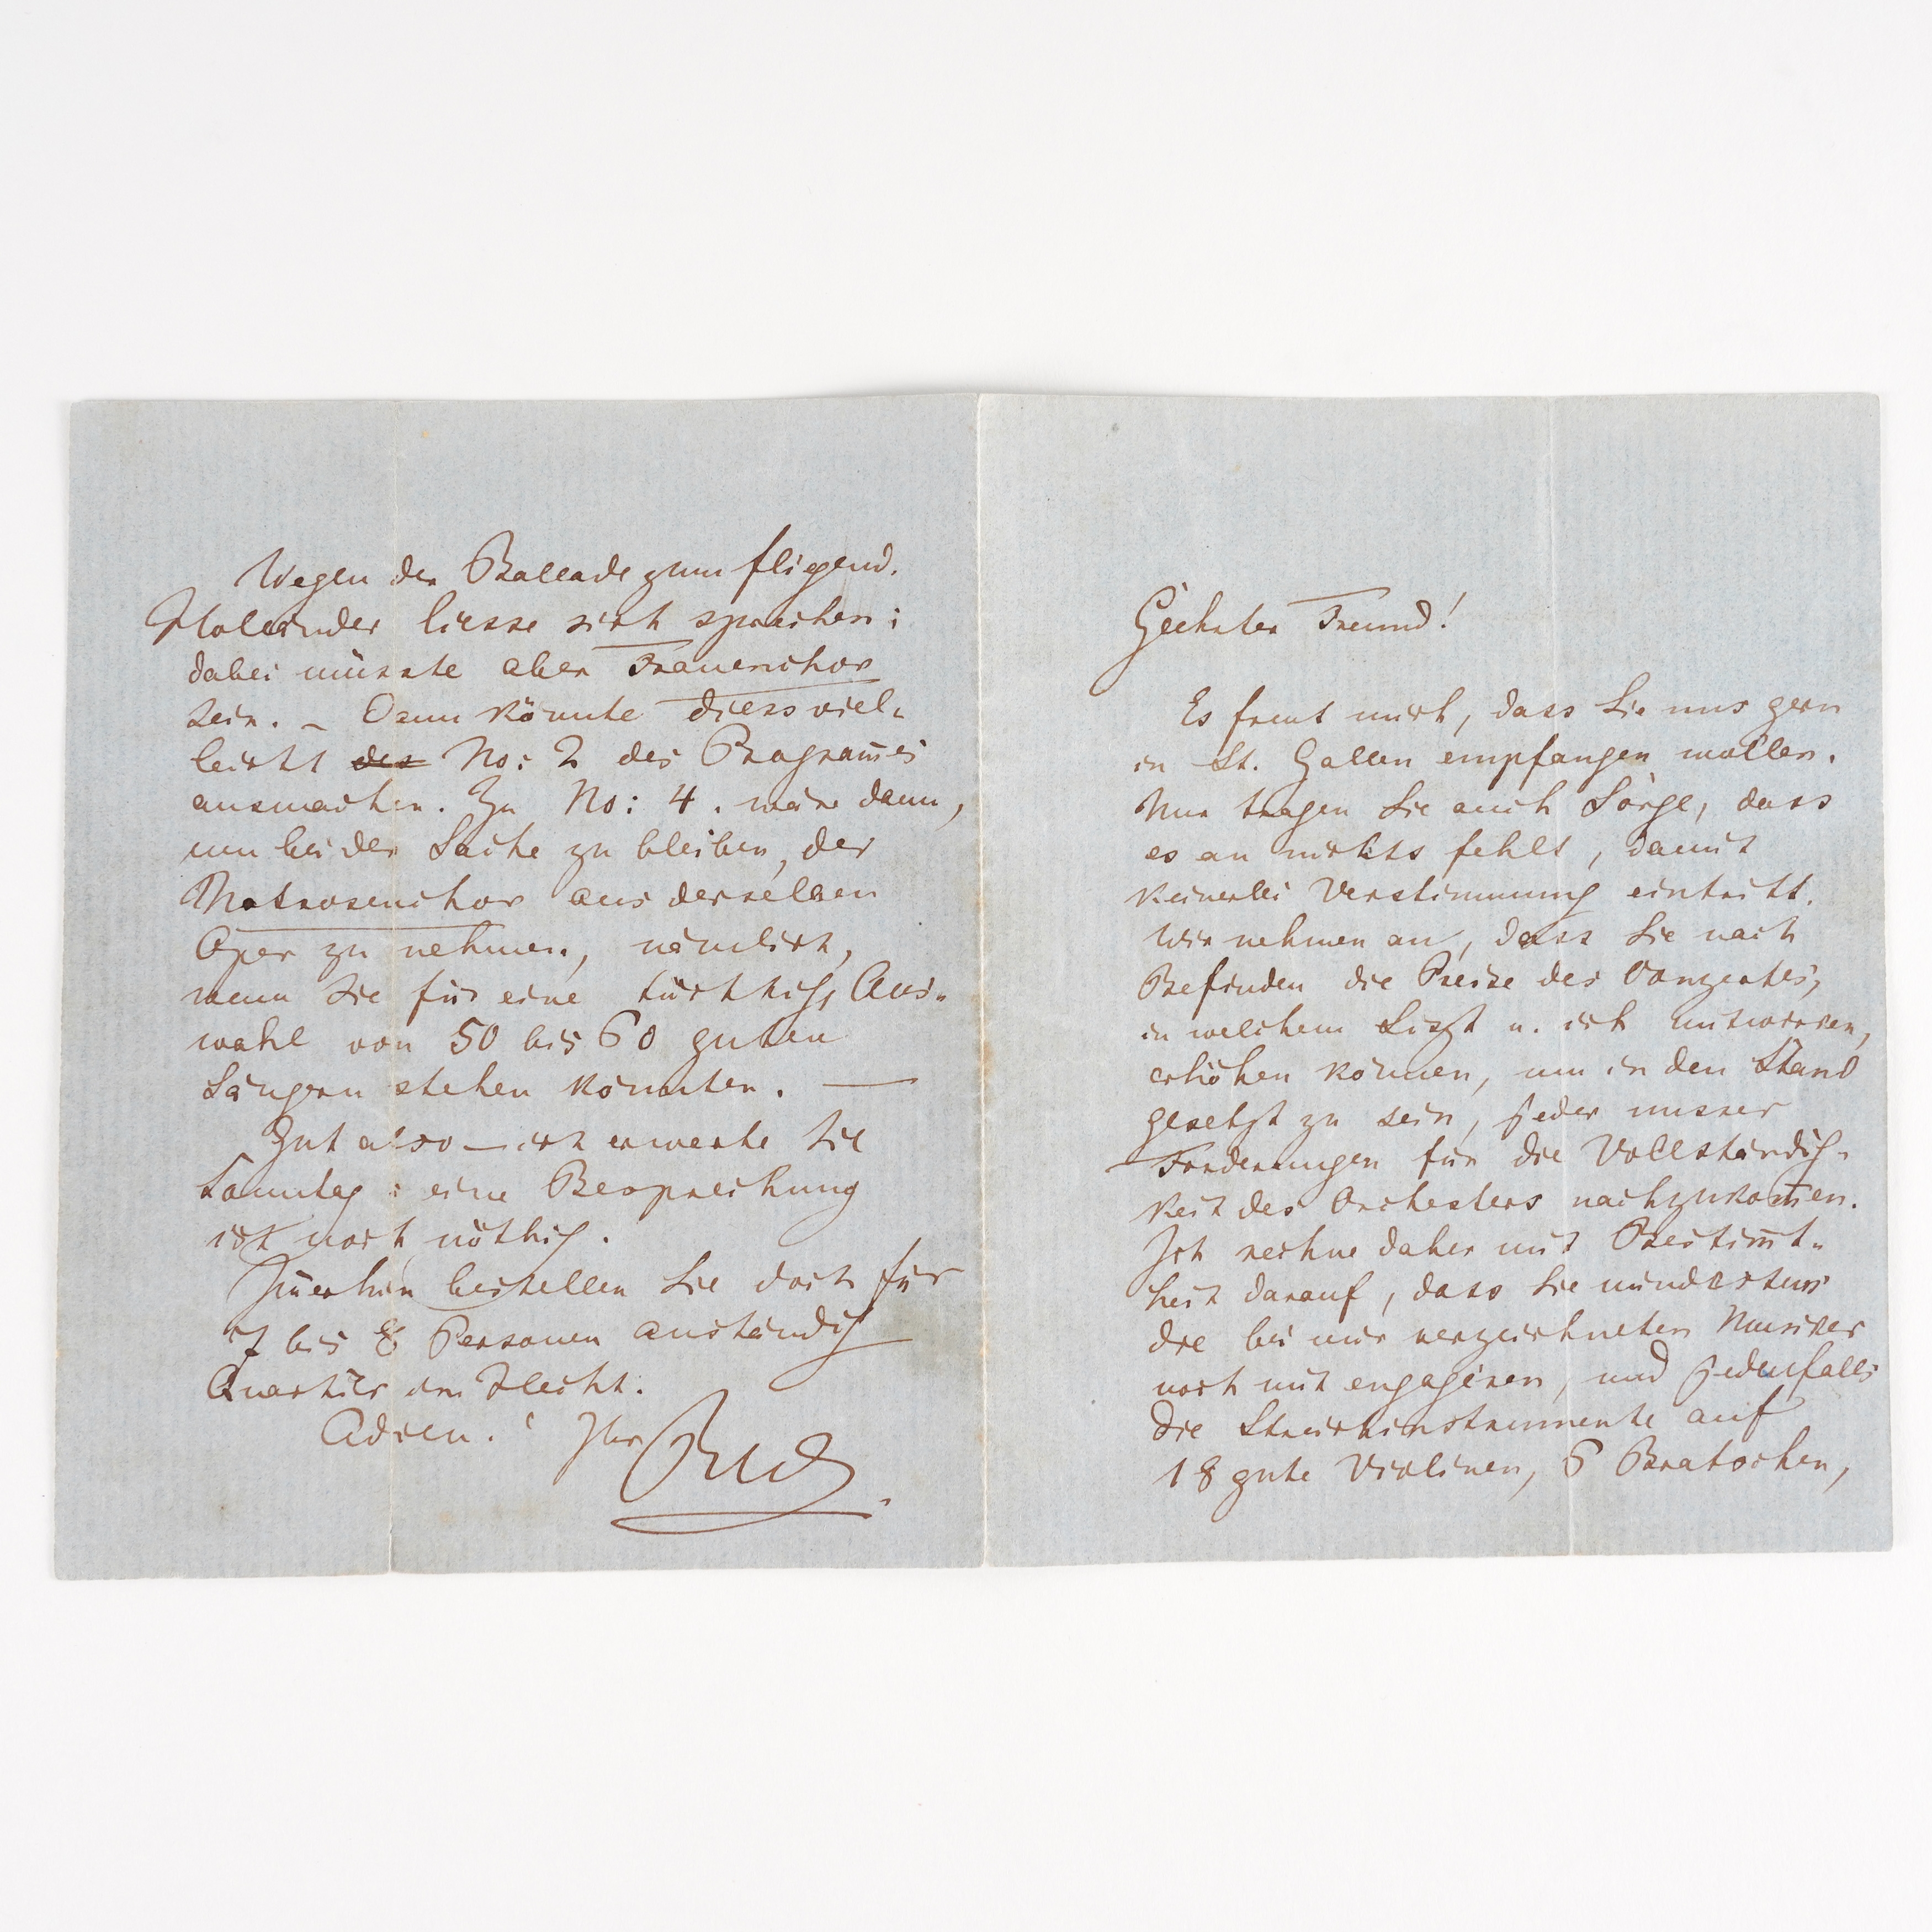 Wegen der Ballade zum fliegend.
Holländer liesse sich sprechen:
dabei müsste aber Frauenchor
sein. – Dann könnte diess viel-
leicht des No: 2 des Programm̄es
ausmachen. Zu No: 4. wäre dann,
um bei der Sache zu bleiben, der
Matrosenchor aus derselben
Oper zu nehmen, nämlich,
wenn Sie für eine tüchtige Aus-
wahl von 50 bis 60 guten
Sängern stehen könnten. —
Gut also — ich erwarte Sie
Sonntag: eine Besprechung
ist noch nöthig.
Im̄erhin bestellen Sie doch für
7 bis 8 Personen anständig
Quartier im Hecht.
Adieu! Ihr
RW.
Geehrter Freund!
Es freut mich, dass Sie uns gern
in St. Gallen empfangen wollen.
Nur tragen Sie auch Sorge, dass
es an nichts fehlt, damit
keinerlei Verstimmung eintritt.
Wir nehmen an, dass Sie nach
Befinden die Preise des Conzertes,
in welchem Liszt u. ich mitwirken,
erhöhen können, um in den Stand
gesetzt zu sein, jeder unsrer
Forderungen für die Vollständig-
keit des Orchesters nachzukom̄en.
Ich rechne daher mit Bestim̄t-
heit darauf, dass Sie mindestens
die bei mir verzeichneten Musiker
noch mit engagiren, und jedenfalls
die Streichinstrumente auf
18 gute Violinen, 6 Bratschen,